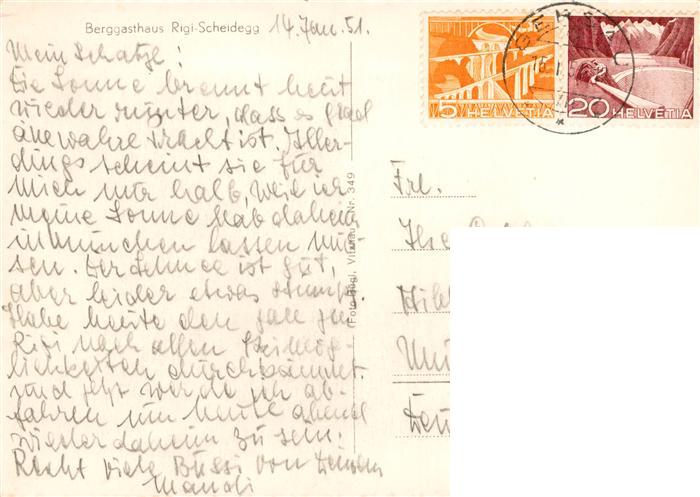 Berggasthaus Rigi-Scheidegg 14. Jan. 51.
Mein Schatze!
Die Sonne brennt heut
wieder runter, dass es grad
eine wahre Pracht ist. Aller-
dings scheint sie für
mich nur halb, weil ich
meine Sonne hab daheim
in München lassen müs-
sen. Der Schnee ist gut,
aber leider etwas stumpf.
Habe heute den ganzen
Rigi nach allen
lichkeiten durchkämmt
und jetzt werde ich ab-
fahren um heute abend
wieder daheim zu sein.
Recht viele Bussi von Deinem
Mandi
(Foto Nr. 349
5 HELVETIA
20 HELVETIA
Frl.
Ilse